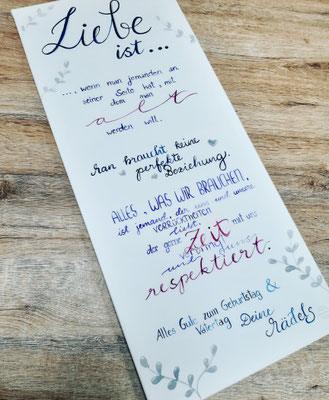 Liebe
ist...
..., wenn man jemanden an
seiner Seite hat, mit
dem man
alt
werden will.
Man braucht keine
perfekte
Beziehung.
ALLES, WAS WIR BRAUCHEN,
ist jemand, der uns und unsere
VERRÜCKTHEITEN
liebt
der gerne Zeit mit uns
verbringt
und uns
respektiert.
Alles Gute zum Geburtstag &
Vatertag Deine
Rädels